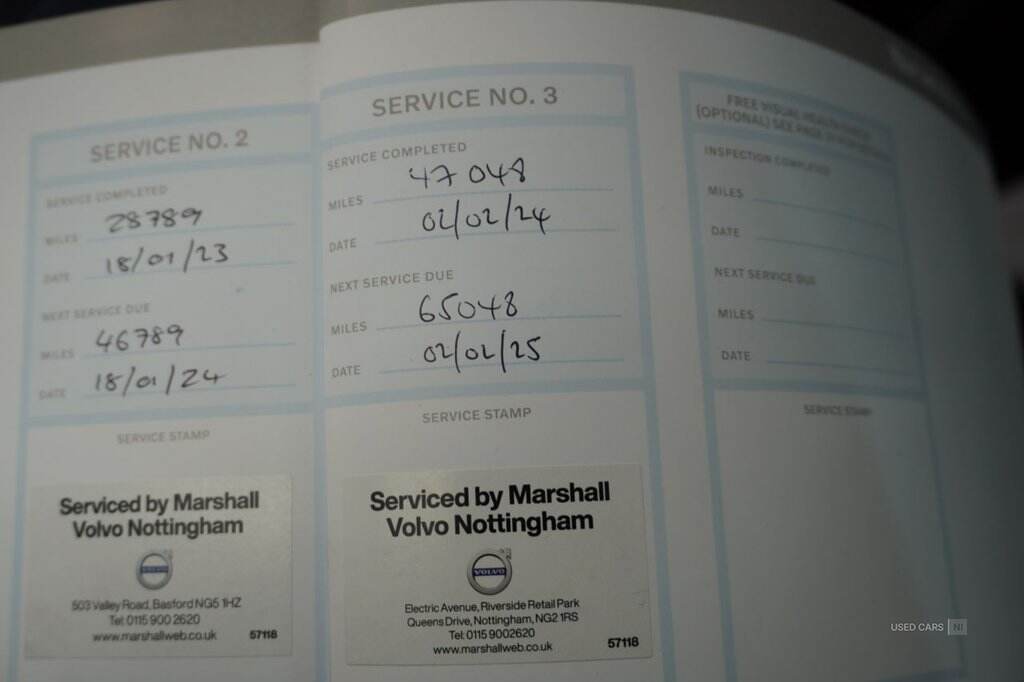 SERVICE NO. 2
SERVICE COMPLETED
MILES 28789
DATE 18/01/23
NEXT SERVICE DUE
MILES 46789
DATE 18/01/24
SERVICE STAMP
Serviced by Marshall
Volvo Nottingham
VOLVO
503 Valley Road, Basford NG5 1HZ
Tel: 0115 900 2620
www.marshallweb.co.uk 57118
SERVICE NO. 3
SERVICE COMPLETED
MILES 47048
DATE 02/02/24
NEXT SERVICE DUE
MILES 65048
DATE 02/02/25
SERVICE STAMP
Serviced by Marshall
Volvo Nottingham
VOLVO
Electric Avenue, Riverside Retail Park
Queens Drive, Nottingham, NG2 1RS
Tel: 0115 9002620
www.marshallweb.co.uk 57118
FREE VISUAL HEALTH CHECK
(OPTIONAL) SEE PAGE
INSPECTION COMPLETED
MILES
DATE
NEXT SERVICE DUE
MILES
DATE
SERVICE STAMP
USED CARS NI